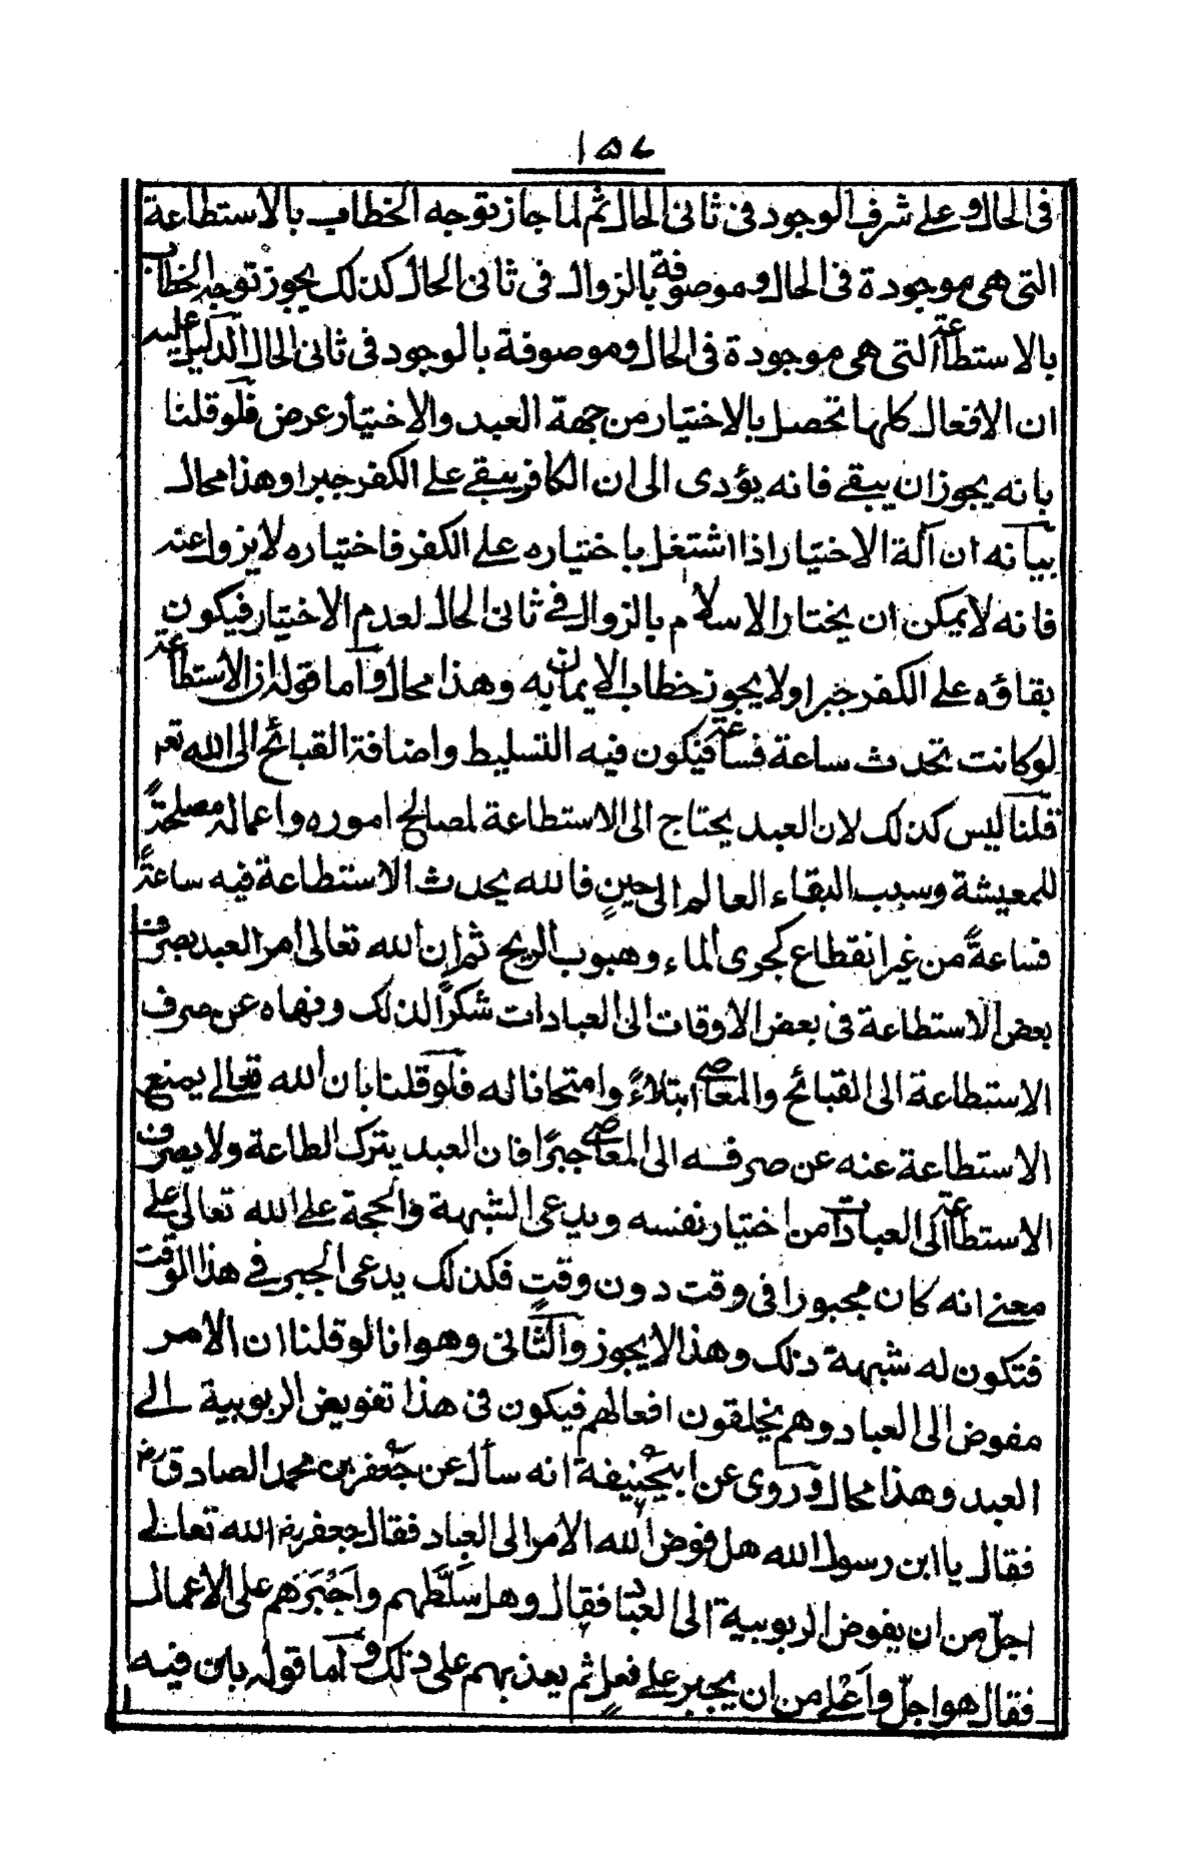 ١٥٧
فى الحال وعلى شرف الوجود فى ثانى الحال ثم لما جاز توجه الخطاب بالاستطاعة
التى هى موجودة فى الحال وموصوفة بالزوال فى ثانى الحال كذلك يجوز توجه الخطاب
بالاستطاعة التى هى موجودة فى الحال وموصوفة بالوجود فى ثانى الحال الدليل عليه
ان الافعال كلها تحصل بالاختيار من جهة العبد والاختيار عرض فلو قلنا
بانه يجوز ان يبقى فانه يؤدى الى ان الكافر يبقى على الكفر جبرا وهذا محال
بيانه ان آلة الاختيار اذا اشتغل باختياره على الكفر فاختياره لا يزول عنه
فانه لا يمكن ان يختار الاسلام بالزوال فى ثانى الحال لعدم الاختيار فيكون
بقاؤه على الكفر جبرا ولا يجوز خطاب الايمان به وهذا محال واما قوله ان الاستطاعة
لو كانت تحدث ساعة فساعة فيكون فيه التسليط واضافة القبائح الى الله تعـ
قلنا ليس كذلك لان العبد يحتاج الى الاستطاعة لمصالح اموره واعماله مصلحةً
للمعيشة وسبب البقاء العالم الى حينٍ فالله يحدث الاستطاعة فيه ساعةً
فساعةً من غير انقطاع كجرى الماء وهبوب الريح ثم ان الله تعالى امر العبد بصرف
بعض الاستطاعة فى بعض الاوقات الى العبادات شكرًا لذلك ونهاه عن صرف
الاستطاعة الى القبائح والمعاصى ابتلاءً وامتحانا له فلو قلنا بان الله تعالى يمنع
الاستطاعة عنه عن صرفه الى المعاصى جبرًا فان العبد يترك الطاعة ولا يصرف
الاستطاعة الى العبادات من اختيار نفسه ويدعى الشبهة والحجة على الله تعالى على
معنى انه كان مجبورا فى وقت دون وقتٍ فكذلك يدعى الجبر فى هذا الوقت
فتكون له شبهة ذلك وهذا لا يجوز والثانى وهو انا لو قلنا ان الامر
مفوض الى العباد وهم يخلقون افعالهم فيكون فى هذا تفويض الربوبية الى
العبد وهذا محال وروى عن ابيحنيفة انه سأل عن جعفر بن محمد الصادق رض
فقال يا ابن رسول الله هل فوض الله الامر الى العباد فقال جعفر رض الله تعالى
اجلّ من ان يفوض الربوبية الى العباد فقال وهل سلَّطهم واجْبَرَهم على الاعمال
فقال هو اجلّ واعْلى من ان يجبر على فعلٍ ثم يعذبهم على ذلك واما قوله بان فيه